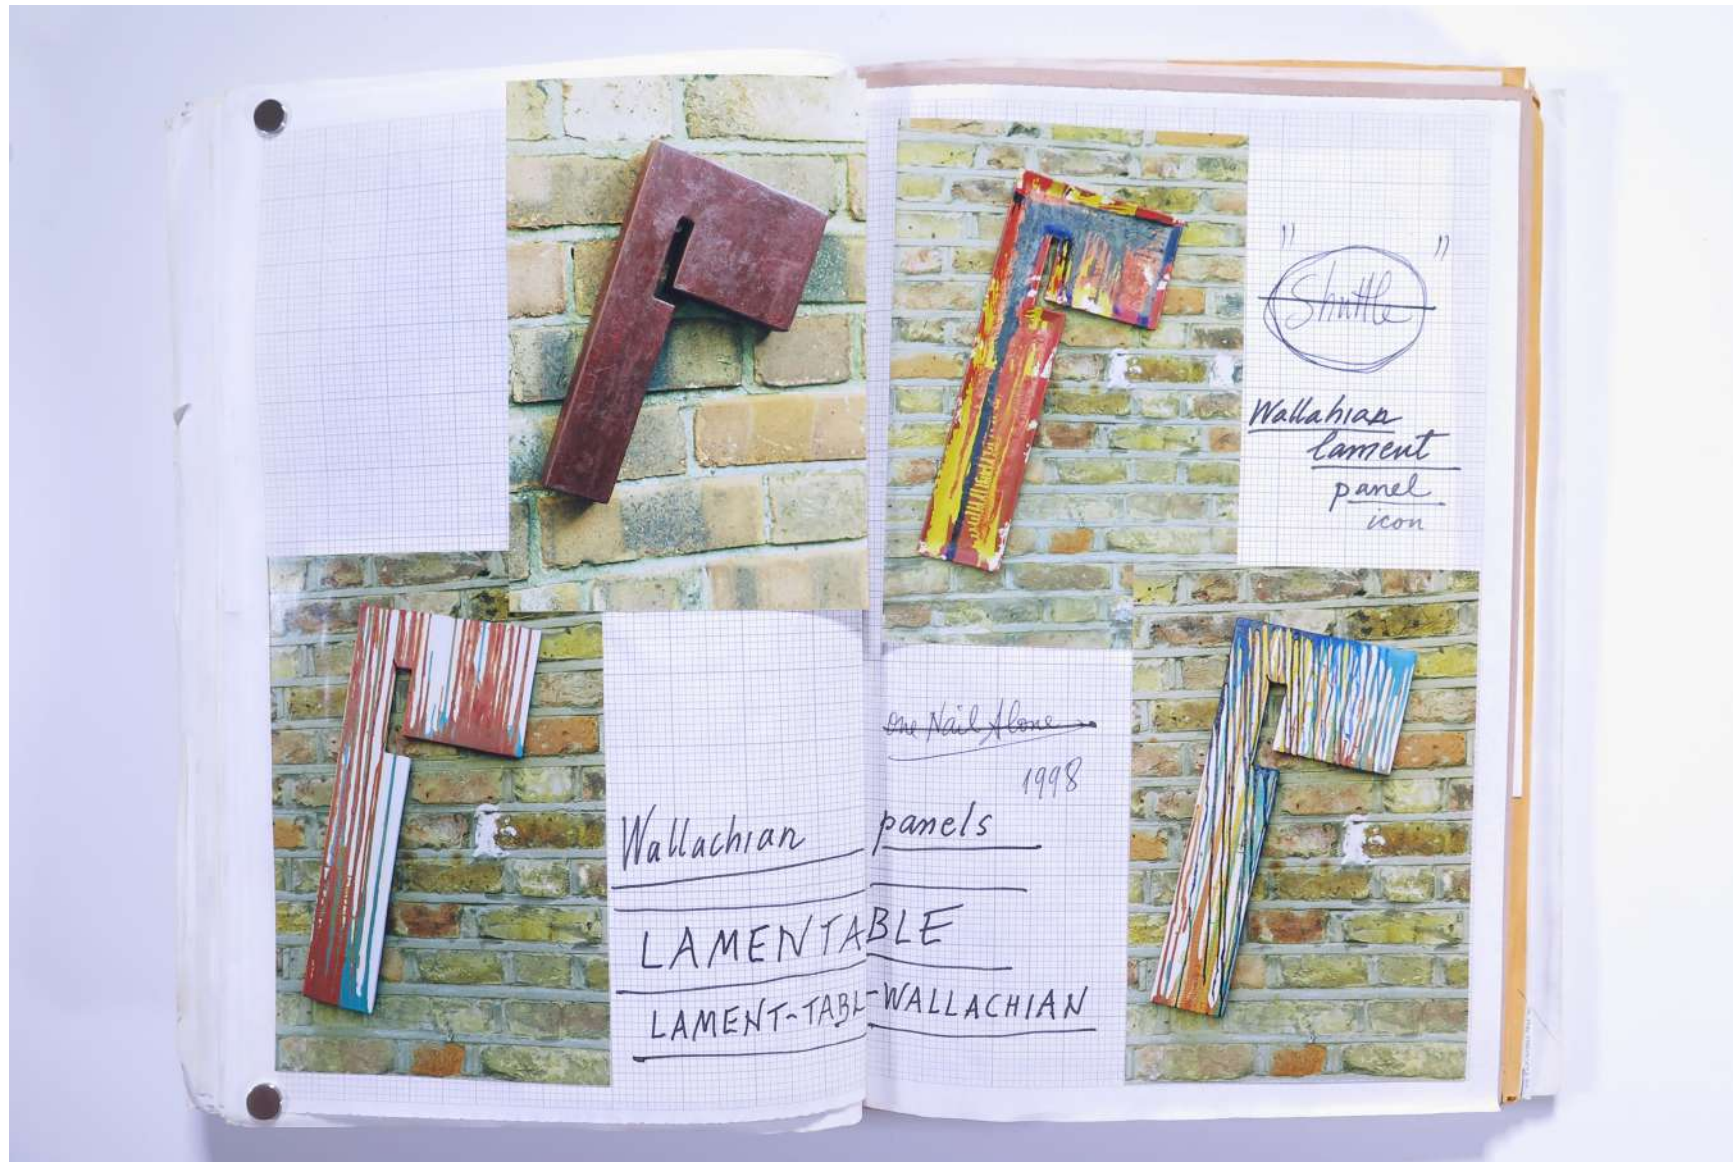 " Shuttle "
Wallahian
lament
panel
icon
One Nail Alone
1998
Wallachian panels
LAMENTABLE
LAMENT-TABL-WALLACHIAN